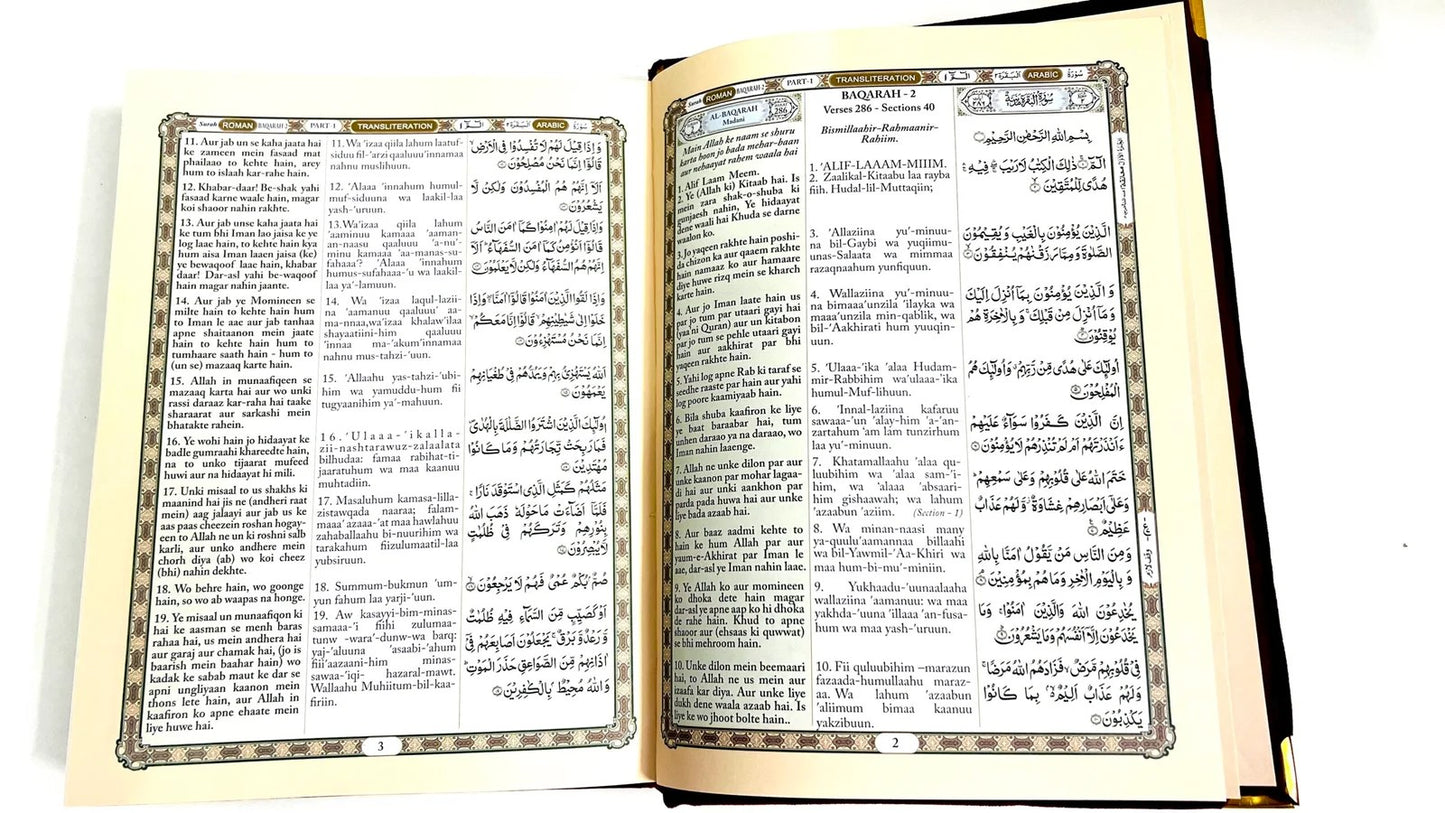 Surah ROMAN BAQARAH-2
PART-1
TRANSLITERATION
الٓمّٓ ١
البقرة ٢
ARABIC
سُورَة
2
AL-BAQARAH
Madani
286
Main Allah ke naam se shuru
karta hoon jo bada mehar-baan
aur nehaayat rahem waala hai
1. Alif Laam Meem.
2. Ye (Allah ki) Kitaab hai. Is
mein zara shak-o-shuba ki
gunjaesh nahin, Ye hidaayat
dene waali hai Khuda se darne
waalon ko.
3. Jo yaqeen rakhte hain poshi-
da chizon ka aur qaaem rakhte
hain namaaz ko aur hamaare
diye huwe rizq mein se kharch
karte hain.
4. Aur jo Iman laate hain us
par jo tum par utaari gayi hai
(yaa'ni Quran) aur un kitabon
par jo tum se pehle utaari gayi
hain aur aakhirat par bhi
yaqeen rakhte hain.
5. Yahi log apne Rab ki taraf se
seedhe raaste par hain aur yahi
log poore kaamiyaab hain.
6. Bila shuba kaafiron ke liye
ye baat baraabar hai, tum
unhen daraao ya na daraao, wo
Iman nahin laaenge.
7. Allah ne unke dilon par aur
unke kaanon par mohar lagaa-
di hai aur unki aankhon par
parda pada huwa hai aur unke
liye bada azaab hai.
8. Aur baaz aadmi kehte to
hain ke hum Allah par aur
yaum-e-Akhirat par Iman le
aae, dar-asl ye Iman nahin laae.
9. Ye Allah ko aur momineen
ko dhoka dete hain magar
dar-asl ye apne aap ko hi dhoka
de rahe hain. Khud to apne
shaoor aur (ehsaas ki quwwat)
se bhi mehroom hain.
10. Unke dilon mein beemaari
hai, to Allah ne us mein aur
izaafa kar diya. Aur unke liye
dukh dene waala azaab hai. Is
liye ke wo jhoot bolte hain..
BAQARAH - 2
Verses 286 - Sections 40
Bismillaahir-Rahmaanir-
Rahiim.
1. 'ALIF-LAAAM-MIIIM.
2. Zaalikal-Kitaabu laa rayba
fiih. Hudal-lil-Muttaqiin;
3. 'Allaziina yu'-minuu-
na bil-Gaybi wa yuqiimu-
unas-Salaata wa mimmaa
razaqnaahum yunfiquun.
4. Wallaziina yu'-minuu-
na bimaaa'unzila 'ilayka wa
maaa'unzila min-qablik, wa
bil-'Aakhirati hum yuuqin-
uun.
5. 'Ulaaa-'ika 'alaa Hudam-
mir-Rabbihim wa'ulaaa-'ika
humul-Muf-lihuun.
6. 'Innal-laziina kafaruu
sawaaa-'un 'alay-him 'a-'an-
zartahum 'am lam tunzirhum
laa yu'-minuun.
7. Khatamallaahu 'alaa qu-
luubihim wa 'alaa sam-'i-
him, wa 'alaaa 'absaari-
him gishaawah; wa lahum
'azaabun 'aziim.
(Section - 1)
8. Wa minan-naasi many
ya-quulu'aamannaa billaahi
wa bil-Yawmil-'Aa-Khiri wa
maa hum-bi-mu'-miniin.
9. Yukhaadu-'uunaalaaha
wallaziina 'aamanuu: wa maa
yakhda-'uuna 'illaaa 'an-fusa-
hum wa maa yash-'uruun.
10. Fii quluubihim –marazun
fazaada-humullaahu maraz-
aa. Wa lahum 'azaabun
'aliimum bimaa kaanuu
yakzibuun.
سُورَةُ الْبَقَرَةِ مَدَنِيَّةٌ
بِسْمِ اللّٰهِ الرَّحْمٰنِ الرَّحِيْمِ
الٓمّٓ ۚ ذٰلِكَ الْكِتٰبُ لَا رَيْبَ ۛ فِيْهِ ۛ
هُدًى لِّلْمُتَّقِيْنَ
الَّذِيْنَ يُؤْمِنُوْنَ بِالْغَيْبِ وَيُقِيْمُوْنَ
الصَّلٰوةَ وَمِمَّا رَزَقْنٰهُمْ يُنْفِقُوْنَ
وَالَّذِيْنَ يُؤْمِنُوْنَ بِمَآ اُنْزِلَ اِلَيْكَ
وَمَآ اُنْزِلَ مِنْ قَبْلِكَ ۚ وَبِالْاٰخِرَةِ هُمْ
يُوْقِنُوْنَ
اُولٰٓئِكَ عَلٰى هُدًى مِّنْ رَّبِّهِمْ ۙ وَاُولٰٓئِكَ هُمُ
الْمُفْلِحُوْنَ
اِنَّ الَّذِيْنَ كَفَرُوْا سَوَآءٌ عَلَيْهِمْ
ءَاَنْذَرْتَهُمْ اَمْ لَمْ تُنْذِرْهُمْ لَا يُؤْمِنُوْنَ
خَتَمَ اللّٰهُ عَلٰى قُلُوْبِهِمْ وَعَلٰى سَمْعِهِمْ ؕ
وَعَلٰٓى اَبْصَارِهِمْ غِشَاوَةٌ ۫ وَّلَهُمْ عَذَابٌ
عَظِيْمٌ
وَمِنَ النَّاسِ مَنْ يَّقُوْلُ اٰمَنَّا بِاللّٰهِ
وَبِالْيَوْمِ الْاٰخِرِ وَمَا هُمْ بِمُؤْمِنِيْنَ
يُخٰدِعُوْنَ اللّٰهَ وَالَّذِيْنَ اٰمَنُوْا ۚ وَمَا
يَخْدَعُوْنَ اِلَّآ اَنْفُسَهُمْ وَمَا يَشْعُرُوْنَ
فِيْ قُلُوْبِهِمْ مَّرَضٌ ۙ فَزَادَهُمُ اللّٰهُ مَرَضًا ۚ
وَلَهُمْ عَذَابٌ اَلِيْمٌۢ ۙ بِمَا كَانُوْا
يَكْذِبُوْنَ
2
Surah ROMAN BAQARAH-2
PART-1
TRANSLITERATION
الٓمّٓ ١
البقرة ٢
ARABIC
سُورَة
11. Aur jab un se kaha jaata hai
ke zameen mein fasaad mat
phailaao to kehte hain, arey
hum to islaah kar-rahe hain.
12. Khabar-daar! Be-shak yahi
fasaad karne waale hain, magar
koi shaoor nahin rakhte.
13. Aur jab unse kaha jaata hai
ke tum bhi Iman lao jaisa ke ye
log laae hain, to kehte hain kya
hum aisa Iman laaen jaisa (ke)
ye bewaqoof laae hain, khabar
daar! Dar-asl yahi be-waqoof
hain magar nahin jaante.
14. Aur jab ye Momineen se
milte hain to kehte hain hum
to Iman le aae aur jab tanhaa
apne shaitaanon mein jaate
hain to kehte hain hum to
tumhaare saath hain - hum to
(un se) mazaaq karte hain.
15. Allah in munaafiqeen se
mazaaq karta hai aur wo unki
rassi daraaz kar-raha hai taake
sharaarat aur sarkashi mein
bhatakte rahein.
16. Ye wohi hain jo hidaayat ke
badle gumraahi khareedte hain,
na to unko tijaarat mufeed
huwi aur na hidaayat hi mili.
17. Unki misaal to us shakhs ki
maanind hai jiis ne (andheri raat
mein) aag jalaayi aur jab us ke
aas paas cheezein roshan hogay-
een to Allah ne un ki roshni salb
karli, aur unko andhere mein
chorh diya (ab) wo koi cheez
(bhi) nahin dekhte.
18. Wo behre hain, wo goonge
hain, so wo ab waapas na honge.
19. Ye misaal un munaafiqon ki
hai ke aasman se menh baras
rahaa hai, us mein andhera hai
aur garaj aur chamak hai, (jo is
baarish mein baahar hain) wo
kadak ke sabab maut ke dar se
apni ungliyaan kaanon mein
thons lete hain, aur Allah in
kaafiron ko apne ehaate mein
liye huwe hai.
11. Wa'izaa qiila lahum laatuf-
siduu fil-'arzi qaaluuu'innamaa
nahnu muslihuun.
12. 'Alaaa 'innahum humul-
muf-siduuna wa laakil-laa
yash-'uruun.
13.Wa'izaa qiila lahum
'aaminuu kamaaa 'aaman-
an-naasu qaaluuu 'a-nu'-
minu kamaaa 'aa-manas-su-
fahaaa'? 'Alaaa 'innahum
humus-sufahaaa-'u wa laakil-
laa ya'-lamuun.
14. Wa 'izaa laqul-lazii-
na 'aamanuu qaaluuu' aa-
ma-nnaa,wa'izaa khalaw'ilaa
shayaatiini-him qaaluuu
'innaa ma-'akum'innamaa
nahnu mus-tahzi-'uun.
15. 'Allaahu yas-tahzi-'ubi-
him wa yamuddu-hum fii
tugyaanihim ya'-mahuun.
16. 'Ulaaa-'ikalla-
zii-nashtarawuz-zalaalata
bilhudaa: famaa rabihat-ti-
jaaratuhum wa maa kaanuu
muhtadiin.
17. Masaluhum kamasa-lilla-
zistawqada naaraa; falam-
maaa' azaaa-'at maa hawlahuu
zahaballaahu bi-nuurihim wa
tarakahum fiizulumaatil-laa
yubsiruun.
18. Summum-bukmun 'um-
yun fahum laa yarji-'uun.
19. Aw kasayyi-bim-minas-
samaaa-'i fiihi zulumaa-
tunw -wara'-dunw-wa barq:
yaj-'aluuna 'asaabi-'ahum
fiii'aazaani-him minas-
sawaa-'iqi hazaral-mawt.
Wallaahu Muhiitum-bil-kaa-
firiin.
وَاِذَا قِيْلَ لَهُمْ لَا تُفْسِدُوْا فِى الْاَرْضِ ۙ
قَالُوْٓا اِنَّمَا نَحْنُ مُصْلِحُوْنَ
اَلَآ اِنَّهُمْ هُمُ الْمُفْسِدُوْنَ وَلٰكِنْ لَّا
يَشْعُرُوْنَ
وَاِذَا قِيْلَ لَهُمْ اٰمِنُوْا كَمَآ اٰمَنَ النَّاسُ
قَالُوْٓا اَنُؤْمِنُ كَمَآ اٰمَنَ السُّفَهَآءُ ؕ اَلَآ
اِنَّهُمْ هُمُ السُّفَهَآءُ وَلٰكِنْ لَّا يَعْلَمُوْنَ
وَاِذَا لَقُوا الَّذِيْنَ اٰمَنُوْا قَالُوْٓا اٰمَنَّا ۚ وَاِذَا
خَلَوْا اِلٰى شَيٰطِيْنِهِمْ ۙ قَالُوْٓا اِنَّا مَعَكُمْ ۙ
اِنَّمَا نَحْنُ مُسْتَهْزِءُوْنَ
اَللّٰهُ يَسْتَهْزِئُ بِهِمْ وَيَمُدُّهُمْ فِيْ طُغْيَانِهِمْ
يَعْمَهُوْنَ
اُولٰٓئِكَ الَّذِيْنَ اشْتَرَوُا الضَّلٰلَةَ بِالْهُدٰى ۪
فَمَا رَبِحَتْ تِّجَارَتُهُمْ وَمَا كَانُوْا
مُهْتَدِيْنَ
مَثَلُهُمْ كَمَثَلِ الَّذِى اسْتَوْقَدَ نَارًا ۚ
فَلَمَّآ اَضَآءَتْ مَا حَوْلَهٗ ذَهَبَ اللّٰهُ
بِنُوْرِهِمْ وَتَرَكَهُمْ فِيْ ظُلُمٰتٍ
لَّا يُبْصِرُوْنَ
صُمٌّۢ بُكْمٌ عُمْيٌ فَهُمْ لَا يَرْجِعُوْنَ
اَوْ كَصَيِّبٍ مِّنَ السَّمَآءِ فِيْهِ ظُلُمٰتٌ
وَّرَعْدٌ وَّبَرْقٌ ۚ يَجْعَلُوْنَ اَصَابِعَهُمْ فِيْٓ
اٰذَانِهِمْ مِّنَ الصَّوَاعِقِ حَذَرَ الْمَوْتِ ؕ
وَاللّٰهُ مُحِيْطٌۢ بِالْكٰفِرِيْنَ
3